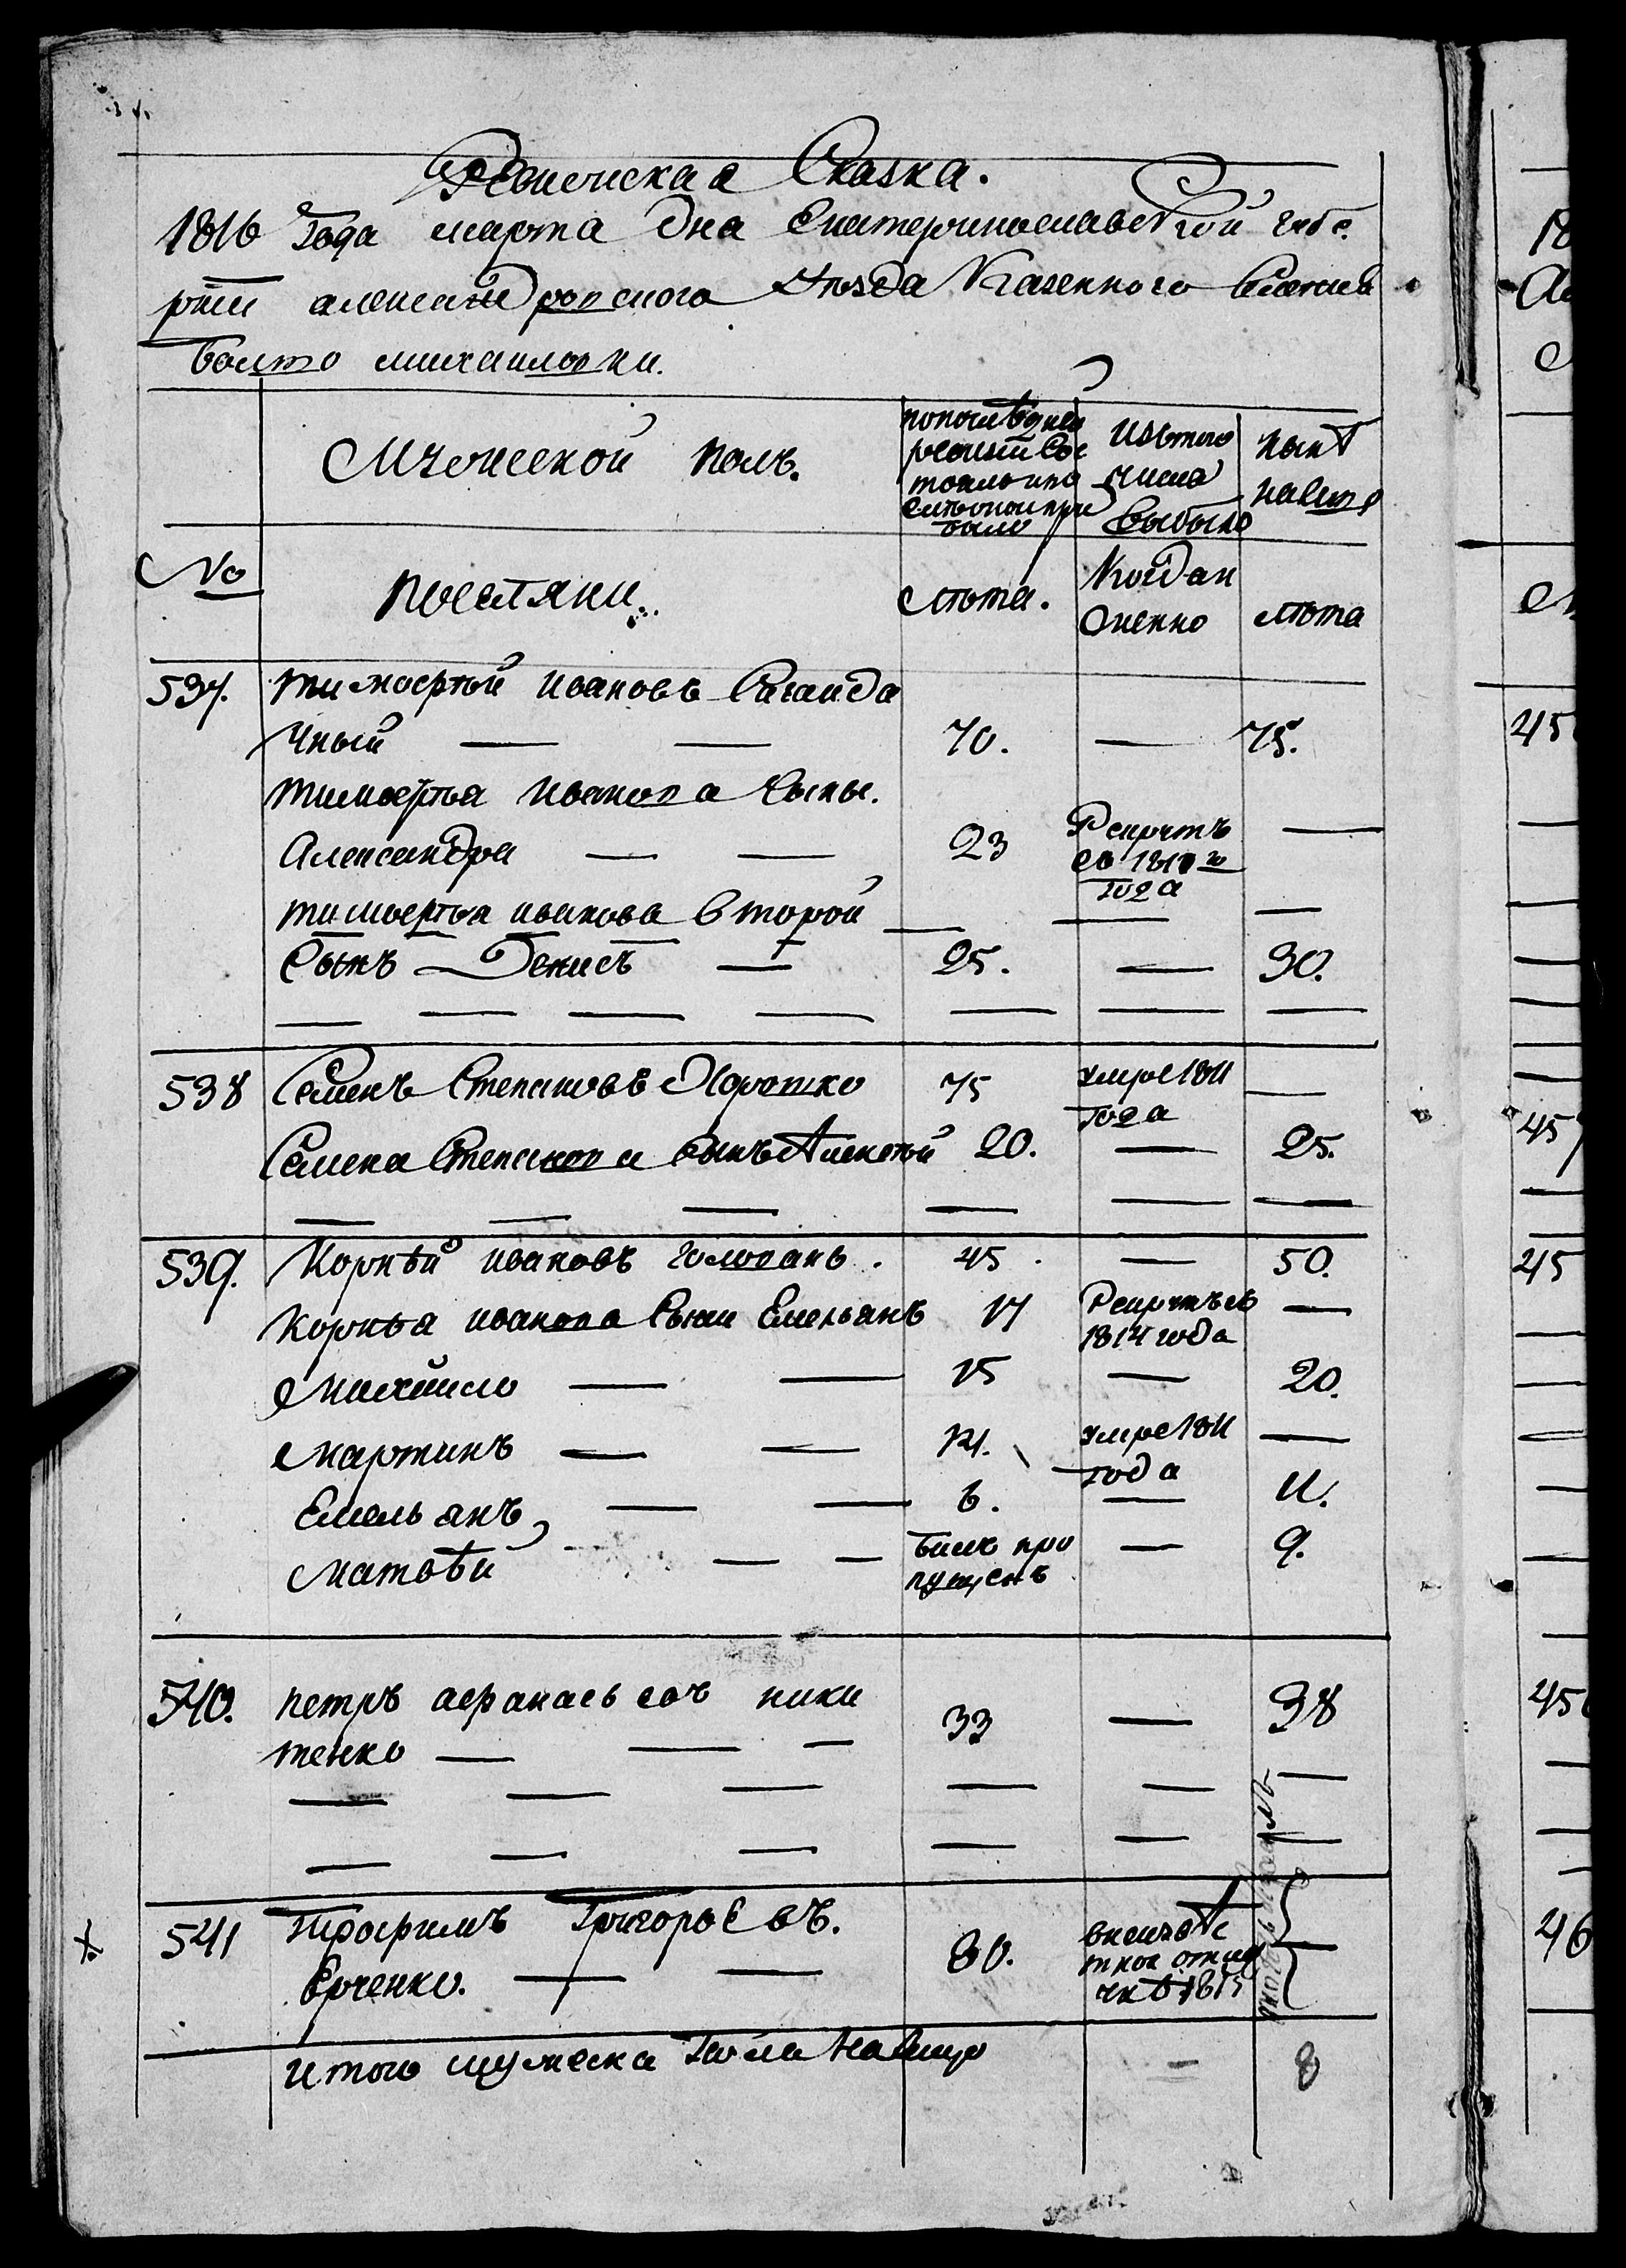 Ревижская Сказка.
1816 года марта дня Екатеринославской губе
рнiи александровского уѣзда Казенного Селенія
болшо михаиловки.
Мужеской полъ.
по последней
ревизіи со
стояло и по
слѣ оной при
было
Изътого
числа
выбыло
нынѣ
налицо
№
поселяни
лѣта.
Когда и
оженно
лѣта
537. тимофѣй ивановъ Сагаида
чный — — 70. — 75.
тимофѣя иванова сыны.
Александра — — 23 Рекрутъ —
съ 181 го
года
тимофѣя иванова второй — — —
Сынъ Денисъ — 25. — 30.
538 Семенъ Степановъ Коротко 75 умре 1811 —
года
Семена Степанова сынъ Алексѣй 20. — 25.
539. Корнѣй ивановъ головань. 45. — 50.
Корнѣя иванова сыни Емельянъ 17 Рекрутъ съ —
1814 года
Михаило — — 15 — 20.
мартинъ — — 14. умре 1811 —
года
Емельянъ — — 6. — 11.
матвѣй — — былъ про — 9.
пущенъ
540. петръ афанасьевъ ники
тенко — — — 33 — 38
541 Трофимъ Григорьевъ.
Юрченко. — — 80.
1815
итого мужеска пола налицо — 8
18
45
45
45
45
46